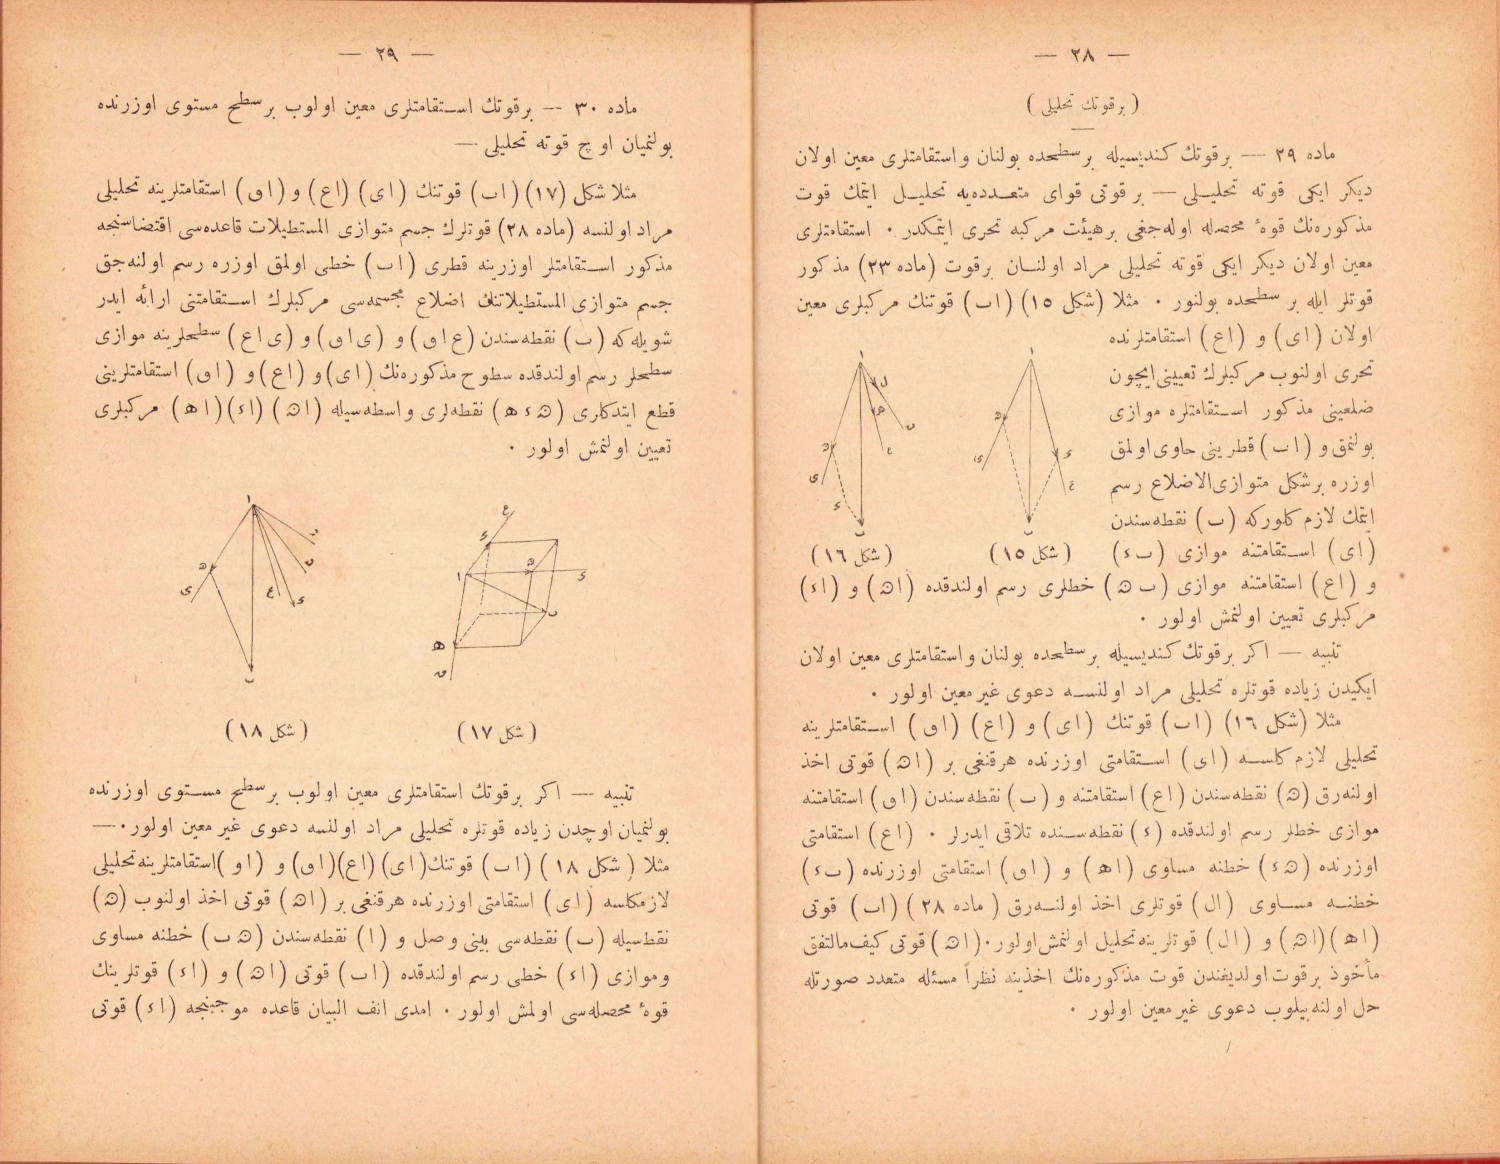 — ٢٨ —
( بر قوتك تحليلى )
ماده ٢٩ — بر قوتك كنديسيله بر سطحده بولنان واستقامتلرى معين اولان
ديكر ايكى قوته تحليلى — بر قوتى قواى متعدده‌يه تحليل ايتمك قوت
مذكوره‌نك قوهٔ محصله اوله‌جغى بر هيئت مركبه تحرى ايتمكدر . استقامتلرى
معين اولان ديكر ايكى قوته تحليلى مراد اولنان بر قوت (ماده ٢٣) مذكور
قوتلر ايله بر سطحده بولنور . مثلا (شكل ١٥) (اب) قوتنك مركبلرى معين
اولان (اى) و (اع) استقامتلرنده
تحرى اولنوب مركبلرك تعيينى ايچون
ضلعينى مذكور استقامتلره موازى
بولنمق و (اب) قطرينى حاوى اولمق
اوزره بر شكل متوازى‌الاضلاع رسم
ايتمك لازم كلوركه (ب) نقطه‌سندن
(اى) استقامتنه موازى (بء)
ا
ه
ى
ء
ع
ب
(شكل ١٥)
ا
ل
ه
ق
ع
ه
ى
ء
ب
(شكل ١٦)
و (اع) استقامتنه موازى (ب ه) خطلرى رسم اولندقده (اه) و (اء)
مركبلرى تعيين اولنمش اولور .
تنبيه — اكر بر قوتك كنديسيله بر سطحده بولنان واستقامتلرى معين اولان
ايكيدن زياده قوتلره تحليلى مراد اولنسه دعوى غير معين اولور .
مثلا (شكل ١٦) (اب) قوتنك (اى) و (اع) (اق) استقامتلرينه
تحليلى لازم كلسه (اى) استقامتى اوزرنده هرقنغى بر (اه) قوتى اخذ
اولنه‌رق (ه) نقطه‌سندن (اع) استقامتنه و (ب) نقطه‌سندن (اق) استقامتنه
موازى خطلر رسم اولندقده (ء) نقطه‌سنده تلاقى ايدرلر . (اع) استقامتى
اوزرنده (هء) خطنه مساوى (اه) و (اق) استقامتى اوزرنده (بء)
خطنه مساوى (ال) قوتلرى اخذ اولنه‌رق ( ماده ٢٨ ) (اب) قوتى
(اه) (اه) و (ال) قوتلرينه تحليل اولنمش اولور . (اه) قوتى كيف مااتفق
مأخوذ بر قوت اولديغندن قوت مذكوره‌نك اخذينه نظراً مسئله متعدد صورتله
حل اولنه بيلوب دعوى غير معين اولور .
— ٢٩ —
ماده ٣٠ — بر قوتك استقامتلرى معين اولوب بر سطح مستوى اوزرنده
بولنميان اوچ قوته تحليلى —
مثلا شكل (١٧) (اب) قوتنك (اى) (اع) و (اق) استقامتلرينه تحليلى
مراد اولنسه (ماده ٢٨) قوتلرك جسم متوازى المستطيلات قاعده‌سى اقتضاسنجه
مذكور استقامتلر اوزرينه قطرى (اب) خطى اولمق اوزره رسم اولنه‌جق
جسم متوازى المستطيلاتنك اضلاع مجسمه‌سى مركبلرك استقامتنى ارائه ايدر
شويله كه (ب) نقطه‌سندن (ع اق) و (ى اق) و (ى اع) سطحلرينه موازى
سطحلر رسم اولندقده سطوح مذكوره‌نك (اى) و (اع) و (اق) استقامتلرينى
قطع ايتدكلرى (ه ء ه) نقطه‌لرى واسطه‌سيله (اه) (اء) (اه) مركبلرى
تعيين اولنمش اولور .
ع
ء
ا
ه
ى
ب
ه
ق
(شكل ١٧)
ا
و
ق
ه
ى
ع
ء
ب
(شكل ١٨)
تنبيه — اكر بر قوتك استقامتلرى معين اولوب بر سطح مستوى اوزرنده
بولنميان اوچدن زياده قوتلره تحليلى مراد اولنسه دعوى غير معين اولور . —
مثلا ( شكل ١٨ ) (اب) قوتنك (اى) (اع) (اق) و (او) استقامتلرينه تحليلى
لازمكلسه (اى) استقامتى اوزرنده هرقنغى بر (اه) قوتى اخذ اولنوب (ه)
نقطسيله (ب) نقطه‌سى بينى وصل و (ا) نقطه‌سندن (ه ب) خطنه مساوى
وموازى (اء) خطى رسم اولندقده (اب) قوتى (اه) و (اء) قوتلرينك
قوهٔ محصله‌سى اولمش اولور . امدى انف البيان قاعده موجبنجه (اء) قوتى